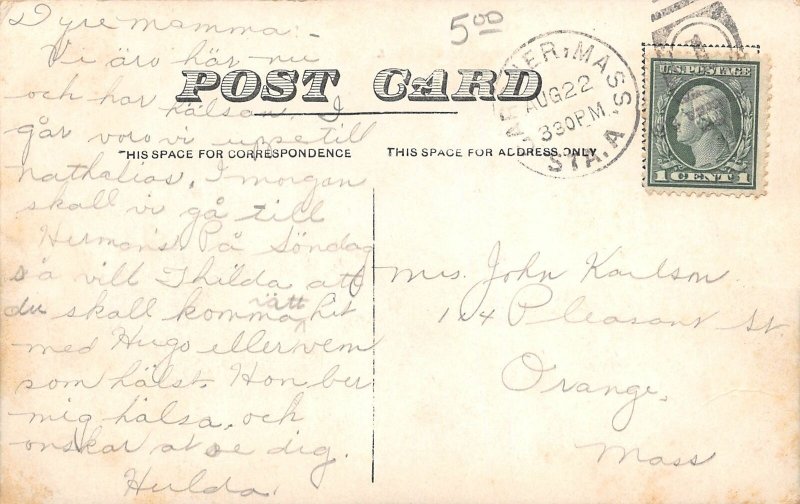 Dyre mamma:-
Vi äro här nu
och har hälsan. I
går voro vi uppe till
Nathalias. I morgon
skall vi gå till
Herman's. På Söndag
så vill Thilda att
du skall komma rätt hit
med Hugo eller vem
som hälst. Hon ber
mig hälsa och
onskar at se dig.
Hulda.
5.00
POST CARD
THIS SPACE FOR CORRESPONDENCE
THIS SPACE FOR ADDRESS ONLY
MASS.
AUG 22
330 PM
STA. A
U.S. POSTAGE
1 CENT 1
Mrs. John Karlson
114 Pleasant St.
Orange,
Mass